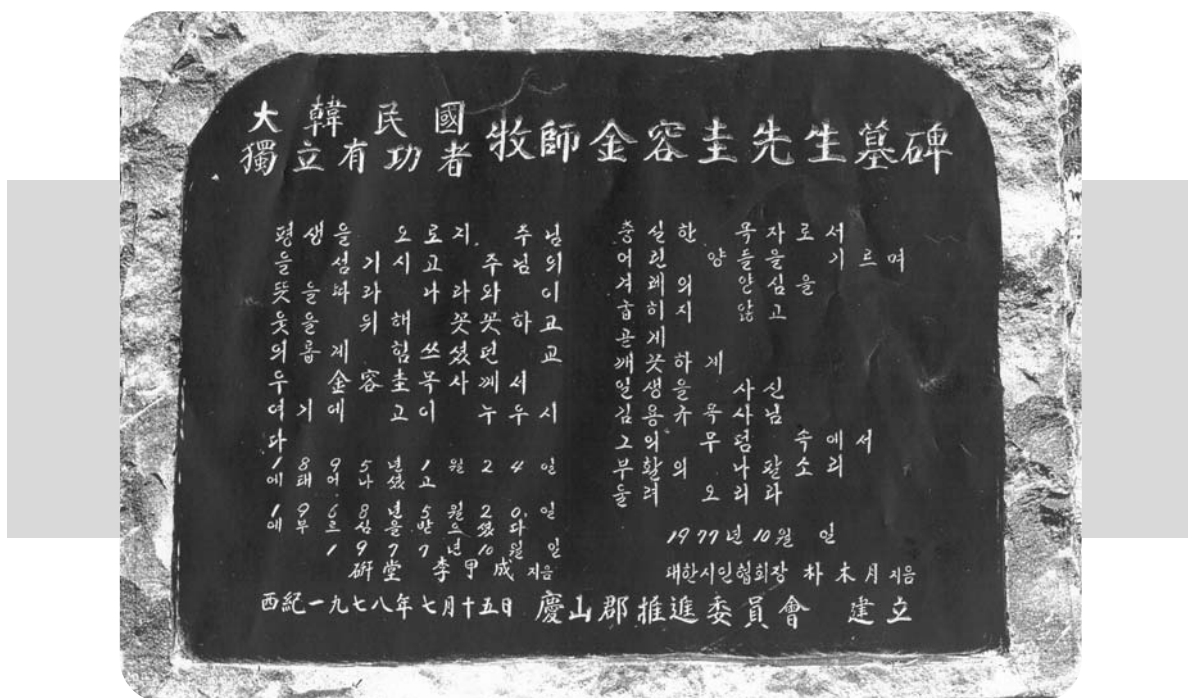 大韓民國
獨立有功者
牧師金容圭先生墓碑
평생을 오로지 주님
을 섬기시고 주님의
뜻을 따라 나라와 이
웃을 위해 꼿꼿하고
의롭게 힘쓰셨던 교
우 金容圭목사께서
여기에 고이 누우시
다
1895년 1월 24일
에 태어나셨고
1968년 5월 20일
에 부르심을 받으셨다
1977년 10월 일
硏堂 李甲成 지음
충실한 목자로서
어린 양들을 기르며
겨레의 안심을
굽히지 않고
곧게
깨끗하게
일생을 사신
김용규 목사님
그의 무덤 속에서
부활의 나팔소리
들려 오리라
1977년 10월 일
대한시인협회장 朴木月 지음
西紀一九七八年七月十五日 慶山郡推進委員會 建立